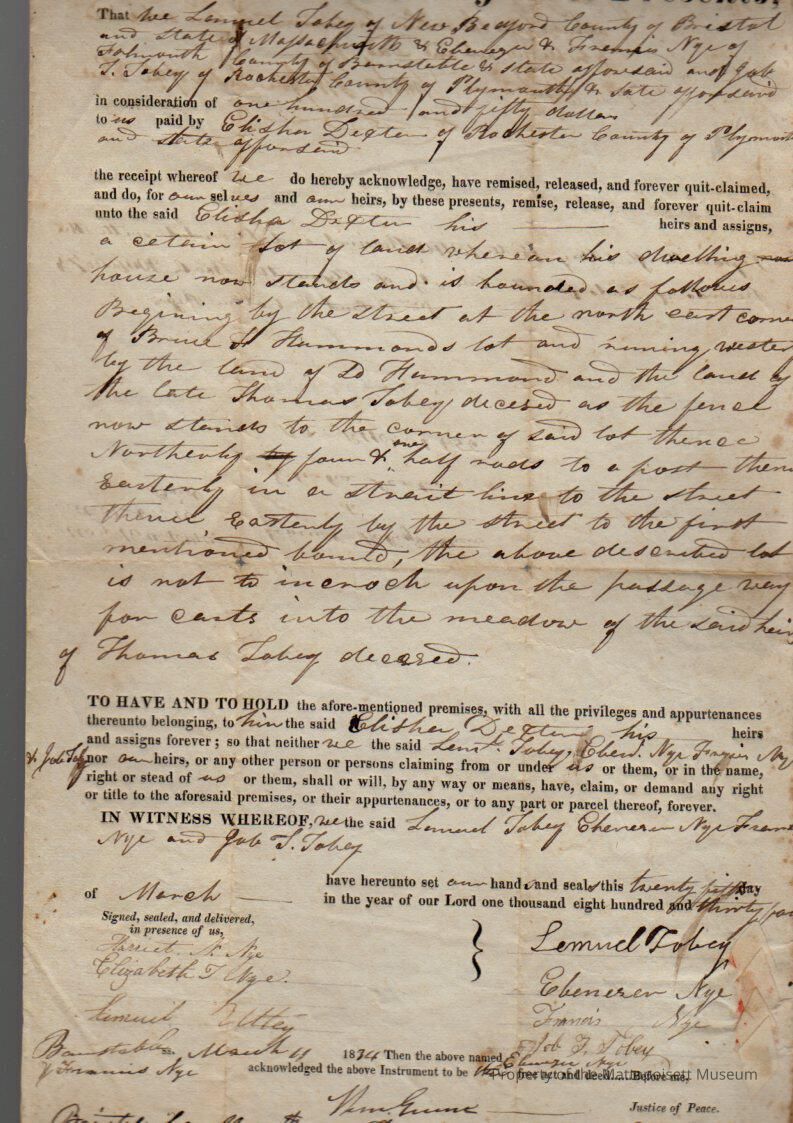 That we Lemuel Tobey of New Bedford County of Bristol
and state of Massachusetts & Ebenezer & Francis Nye of
Falmouth County of Barnstable & state afforsaid and Job
T. Tobey of Rochester County of Plymouth & sate afforsaid
in consideration of one hundred and fifty dollars
to us paid by Elisha Dexter of Rochester County of Plymouth
and state afforsaid
the receipt whereof we do hereby acknowledge, have remised, released, and forever quit-claimed,
and do, for ourselves and our heirs, by these presents, remise, release, and forever quit-claim
unto the said Elisha Dexter his heirs and assigns,
a cetain lot of land wherean his dwelling
house now stands and is bounded as follows
Begining by the street at the north east corner
of Bruce H Hammonds lot and runing wester
by the land of Do Hammond and the land of
the late Thomas Tobey decesed as the fence
now stands to the corner of said lot thence
Northerly by four & one half rods to a post then
Easterly in a strait line to the street
thence Easterly by the street to the first
mentioned bound, the above described lot
is not to incroch upon the passage way
for carts into the meadow of the said heirs
of Thomas Tobey decesed.
TO HAVE AND TO HOLD the afore-mentioned premises, with all the privileges and appurtenances
thereunto belonging, to him the said Elisha Dexter his heirs
and assigns forever; so that neither we the said Leml. Tobey, Eben. Nye Francis Nye
& Job Tobey nor our heirs, or any other person or persons claiming from or under us or them, or in the name,
right or stead of us or them, shall or will, by any way or means, have, claim, or demand any right
or title to the aforesaid premises, or their appurtenances, or to any part or parcel thereof, forever.
IN WITNESS WHEREOF, we the said Lemuel Tobey Ebenezer Nye Francis
Nye and Job T. Tobey
have hereunto set our hands and seals this twenty fifth day
of March in the year of our Lord one thousand eight hundred and thirty four
Signed, sealed, and delivered,
in presence of us,
Harriet N. Nye
Elizabeth T Nye.
Lemuel Tobey
Ebenezer Nye
Francis Nye
Job T. Tobey
Barnstable ss. March 1834 Then the above named Ebenezer Nye
& Francis Nye acknowledged the above Instrument to be free act and deed....Before me,
Property of the Mattapoisett Museum
Justice of Peace.